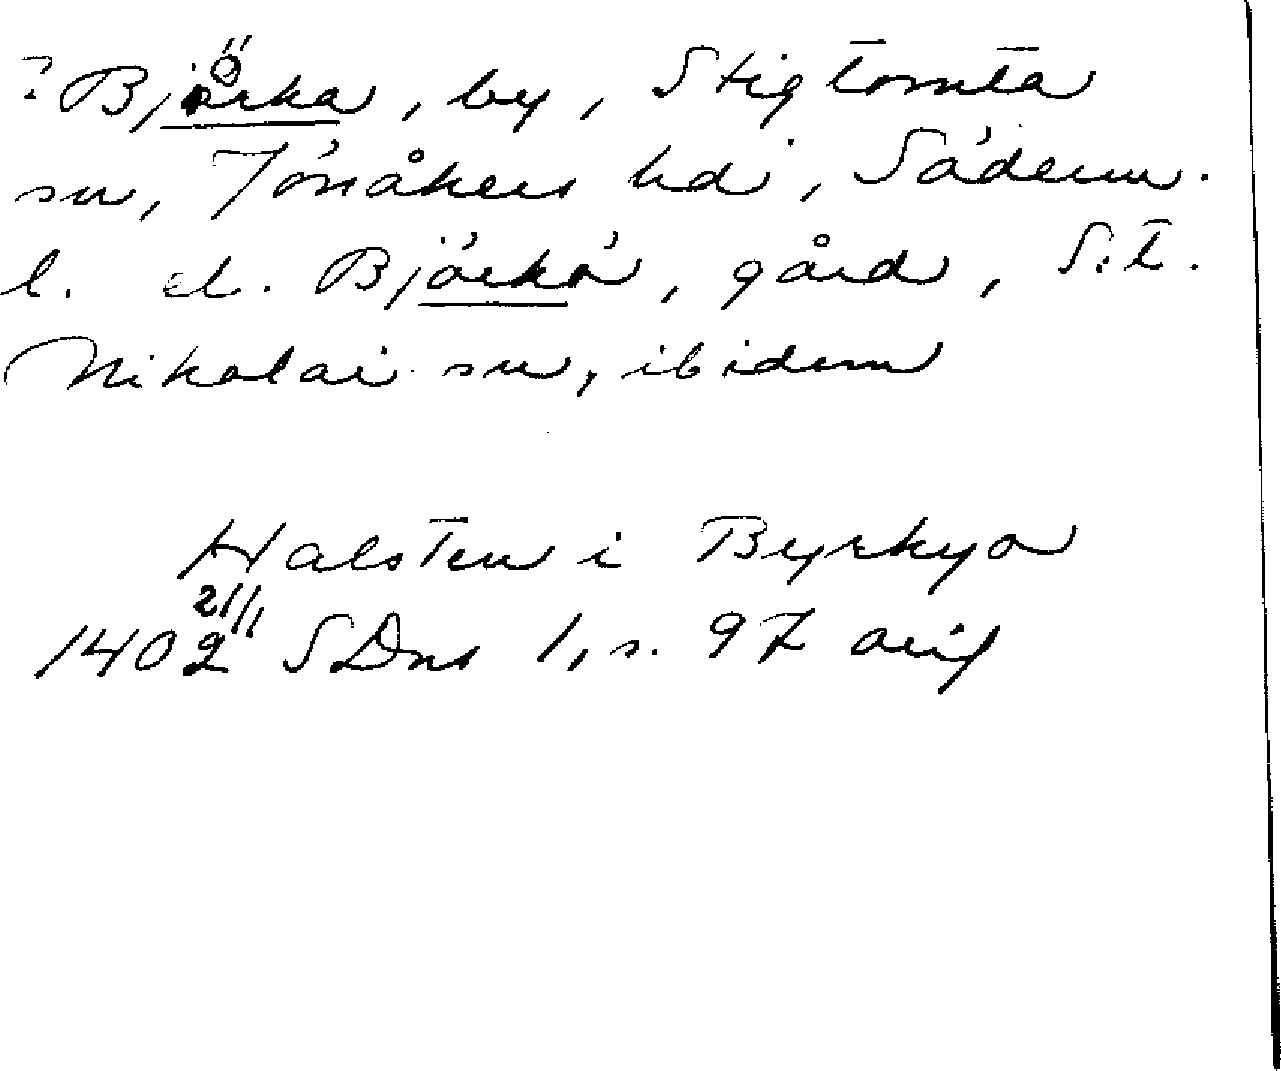 ? Björka, by, Stigtomta
sn, Jönåkers hd, Söderm.
l. el. Björkö, gård, S:t.
Nikolai sn, ibidem
Halsten i Byrkyo
1402 21/11 SDns 1, s. 97 avig